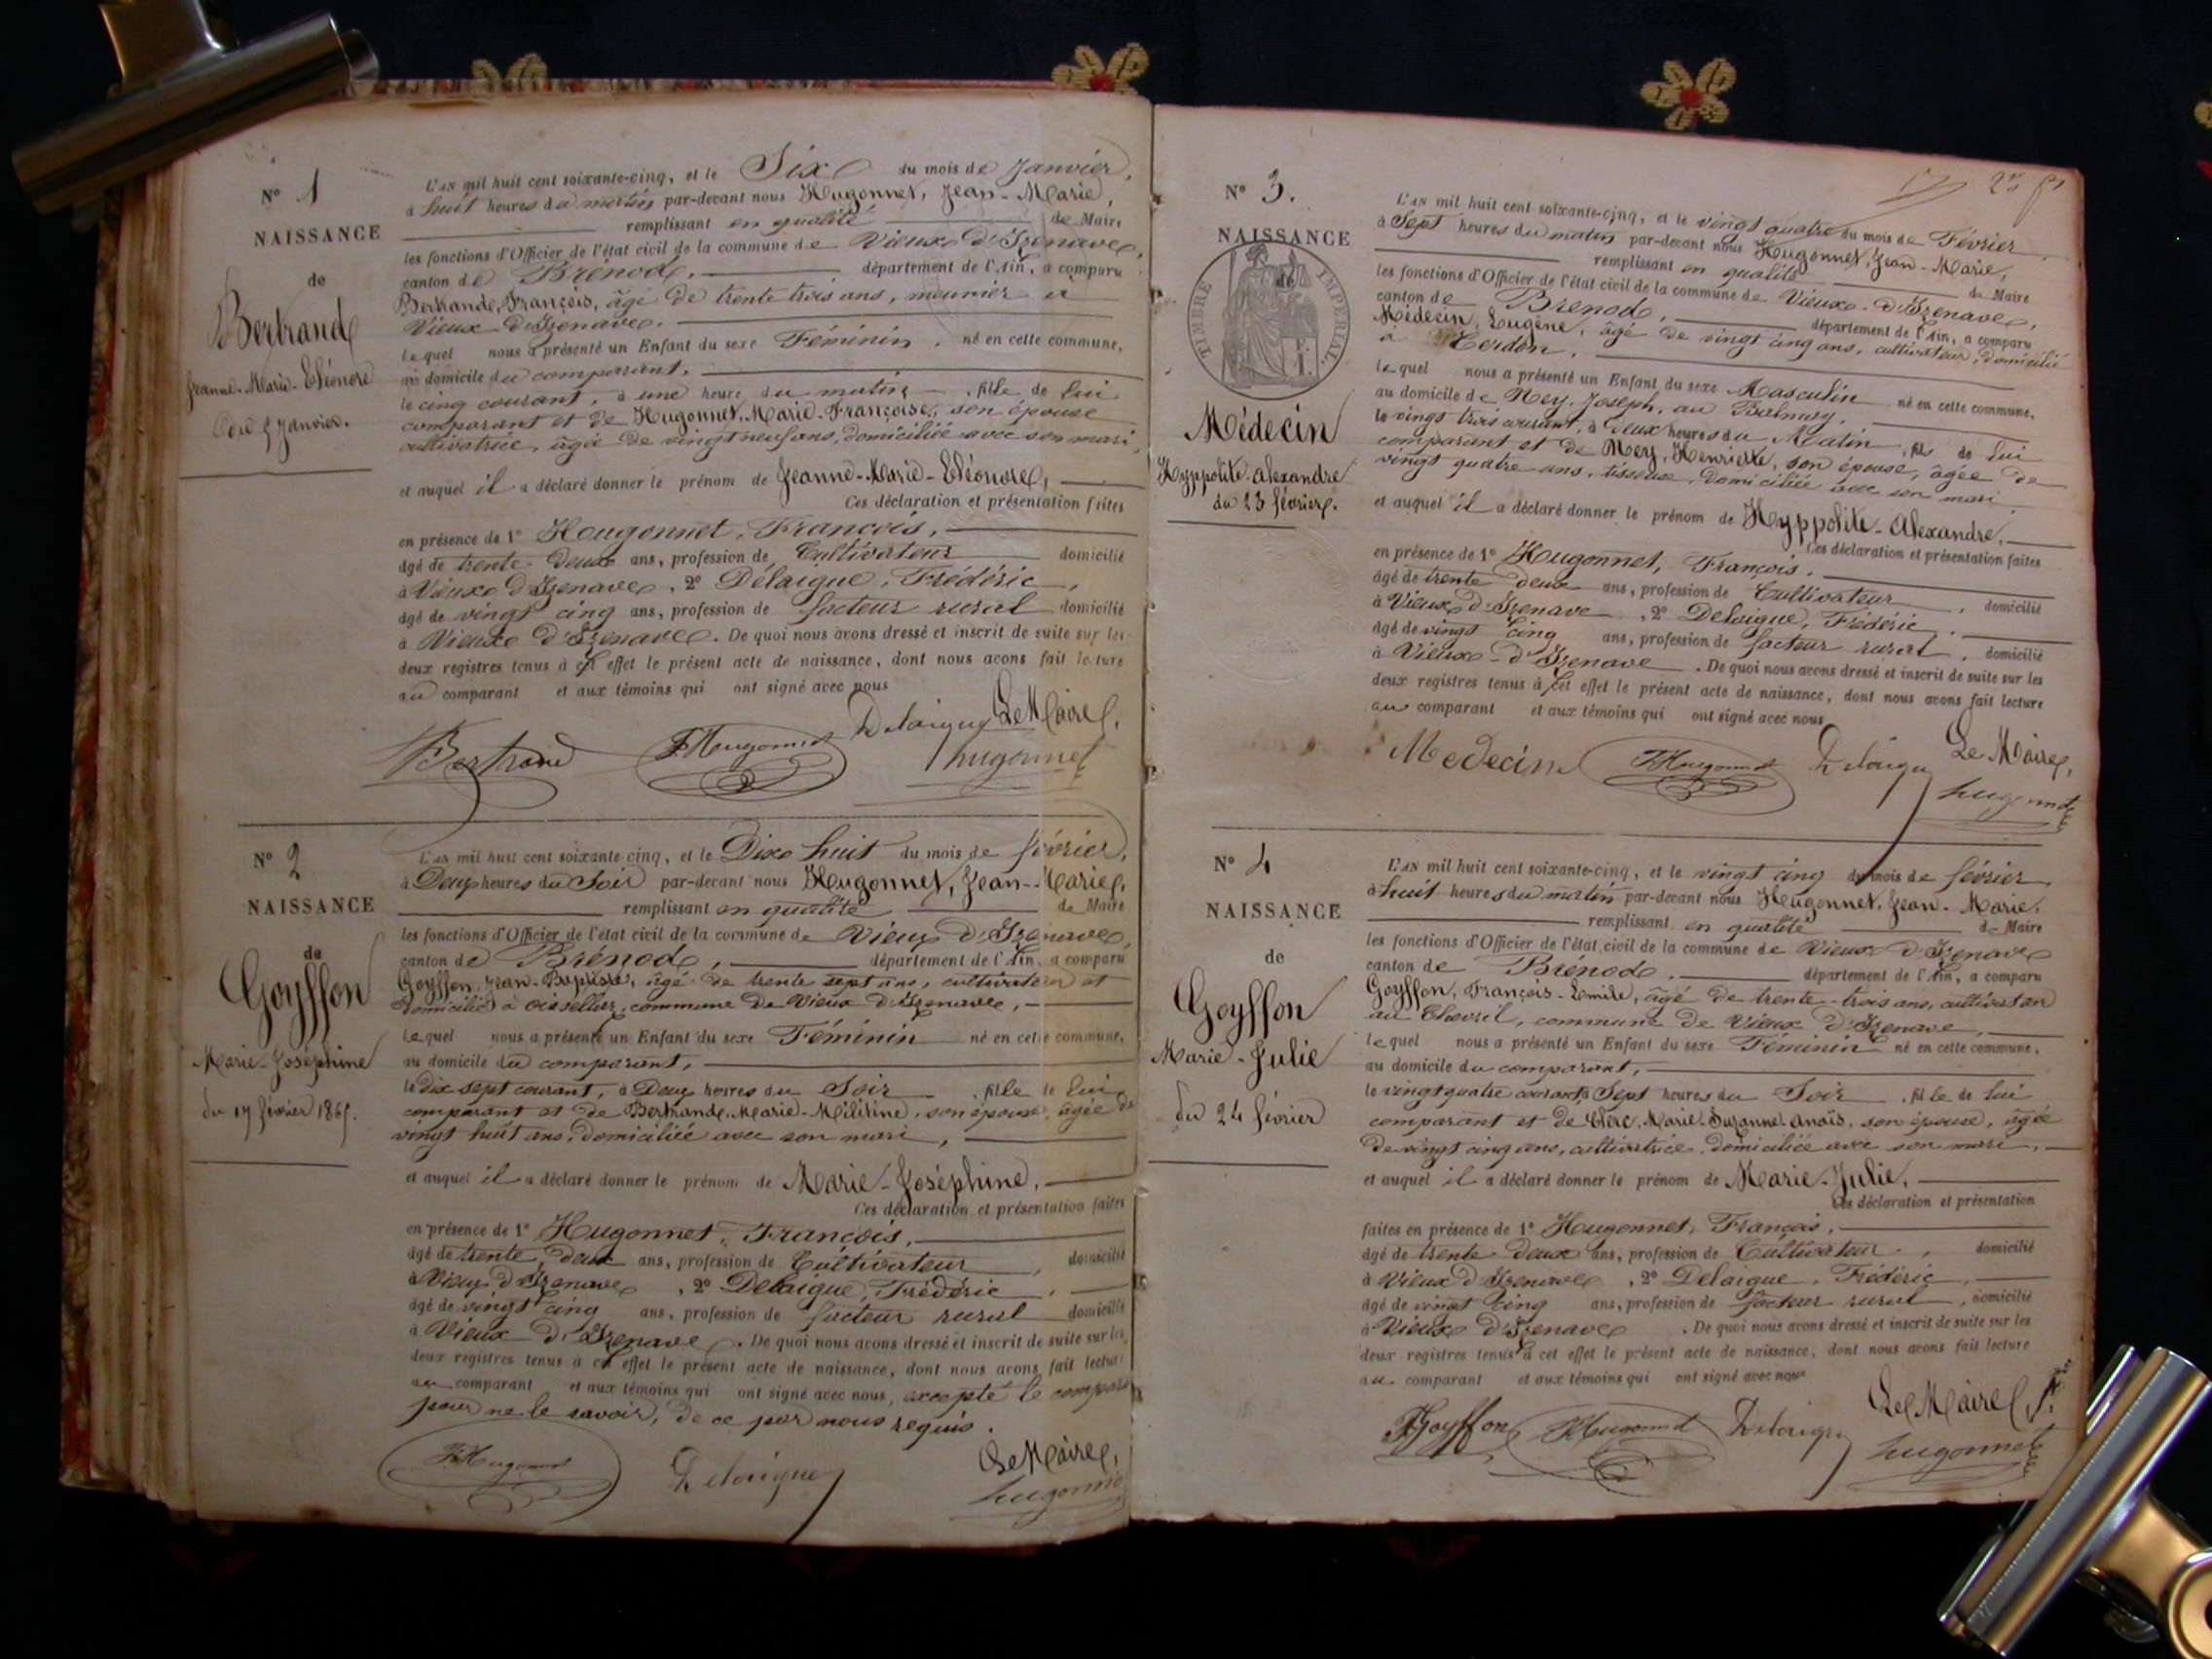 N° 1
NAISSANCE
de
Bertrand
Jeanne-Marie-Eléonore
du 5 Janvier.
L'AN mil huit cent soixante-cinq, et le Six du mois de Janvier,
à huit heures du matin par-devant nous Hugonnet, Jean-Marie,
remplissant en qualité de Maire
les fonctions d'Officier de l'état civil de la commune de Vieux d'Izenave,
canton de Brénod, département de l'Ain, a comparu
Bertrand, François, âgé de trente trois ans, meunier à
Vieux d'Izenave.
lequel nous a présenté un Enfant du sexe Féminin, né en cette commune,
au domicile du comparant,
le cinq courant, à une heure du matin, fille de lui
comparant et de Hugonnet, Marie-Françoise, son épouse
cultivatrice, âgée de vingt neuf ans, domiciliée avec son mari,
et auquel il a déclaré donner le prénom de Jeanne-Marie-Eléonore,
Ces déclaration et présentation faites
en présence de 1° Hugonnet, François,
âgé de trente-deux ans, profession de Cultivateur domicilié
à Vieux d'Izenave, 2° Delaigue, Frédéric,
âgé de vingt cinq ans, profession de facteur rural domicilié
à Vieux d'Izenave. De quoi nous avons dressé et inscrit de suite sur les
deux registres tenus à cet effet le présent acte de naissance, dont nous avons fait lecture
au comparant et aux témoins qui ont signé avec nous
Bertrand FHugonnet Delaigue Le Maire,
hugonnet
N° 2
NAISSANCE
de
Goyffon
Marie-Joséphine
du 17 février 1865.
L'AN mil huit cent soixante-cinq, et le Dix huit du mois de février,
à Deux heures du Soir par-devant nous Hugonnet, Jean-Marie,
remplissant en qualité de Maire
les fonctions d'Officier de l'état civil de la commune de Vieux d'Izenave,
canton de Brénod, département de l'Ain, a comparu
Goyffon, Jean-Baptiste, âgé de trente sept ans, cultivateur et
domicilié à oisellier, commune de Vieux d'Izenave,
lequel nous a présenté un Enfant du sexe Féminin né en cette commune,
au domicile du comparant,
le Dix sept courant, à Deux heures du Soir, fille de lui
comparant et de Bertrand, Marie- son épouse, âgée de
vingt huit ans, domiciliée avec son mari,
et auquel il a déclaré donner le prénom de Marie-Joséphine,
Ces déclaration et présentation faites
en présence de 1° Hugonnet, François,
âgé de trente deux ans, profession de Cultivateur, domicilié
à Vieux d'Izenave, 2° Delaigue, Frédéric,
âgé de vingt cinq ans, profession de facteur rural domicilié
à Vieux d'Izenave. De quoi nous avons dressé et inscrit de suite sur les
deux registres tenus à cet effet le présent acte de naissance, dont nous avons fait lecture
au comparant et aux témoins qui ont signé avec nous, excepté le compara
pour ne le savoir, de ce par nous requis.
FHugonnet Delaigue Le Maire,
hugonnet
N° 3.
NAISSANCE
de
TIMBRE IMPERIAL
Médecin
Hyppolite-Alexandre
du 23 février.
L'AN mil huit cent soixante-cinq, et le vingt quatre du mois de Février
à Sept heures du matin par-devant nous Hugonnet, Jean-Marie,
remplissant en qualité de Maire
les fonctions d'Officier de l'état civil de la commune de Vieux-d'Izenave,
canton de Brenod, département de l'Ain, a comparu
Médecin, Eugène, âgé de vingt cinq ans, cultivateur, domicilié
à Cerdon,
lequel nous a présenté un Enfant du sexe Masculin né en cette commune,
au domicile de Mey, Joseph, au Balmay,
le vingt trois courant, à Deux heures du Matin, fils de lui
comparant et de Mey, Henriette, son épouse, âgée de
vingt quatre ans, tisseuse, domiciliée avec son mari
et auquel il a déclaré donner le prénom de Hyppolite-Alexandre,
Ces déclaration et présentation faites
en présence de 1° Hugonnet, François,
âgé de trente deux ans, profession de Cultivateur, domicilié
à Vieux d'Izenave, 2° Delaigue, Frédéric,
âgé de vingt cinq ans, profession de facteur rural, domicilié
à Vieux-d'Izenave. De quoi nous avons dressé et inscrit de suite sur les
deux registres tenus à cet effet le présent acte de naissance, dont nous avons fait lecture
au comparant et aux témoins qui ont signé avec nous
Medecin FHugonnet Delaigue Le Maire,
hugonnet
N° 4
NAISSANCE
de
Goyffon
Marie-Julie
du 24 février
L'AN mil huit cent soixante-cinq, et le vingt cinq du mois de février
à huit heures du matin par-devant nous Hugonnet, Jean-Marie,
remplissant en qualité de Maire
les fonctions d'Officier de l'état civil de la commune de Vieux d'Izenave
canton de Brénod, département de l'Ain, a comparu
Goyffon, François-Emile, âgé de trente-trois ans, cultivat au
au Chevril, commune de Vieux d'Izenave,
lequel nous a présenté un Enfant du sexe Féminin né en cette commune,
au domicile du comparant,
le vingt quatre courant à Sept heures du Soir, fille de lui
comparant et de Clerc, Marie-Suzanne-Anaïs, son épouse, âgée
de vingt cinq ans, cultivatrice, domiciliée avec son mari,
et auquel il a déclaré donner le prénom de Marie-Julie,
Ces déclaration et présentation
faites en présence de 1° Hugonnet, François,
âgé de trente deux ans, profession de Cultivateur, domicilié
à Vieux d'Izenave, 2° Delaigue, Frédéric,
âgé de vingt cinq ans, profession de facteur rural, domicilié
à Vieux d'Izenave. De quoi nous avons dressé et inscrit de suite sur les
deux registres tenus à cet effet le présent acte de naissance, dont nous avons fait lecture
au comparant et aux témoins qui ont signé avec nous
Goyffon FHugonnet Delaigue Le Maire,
hugonnet